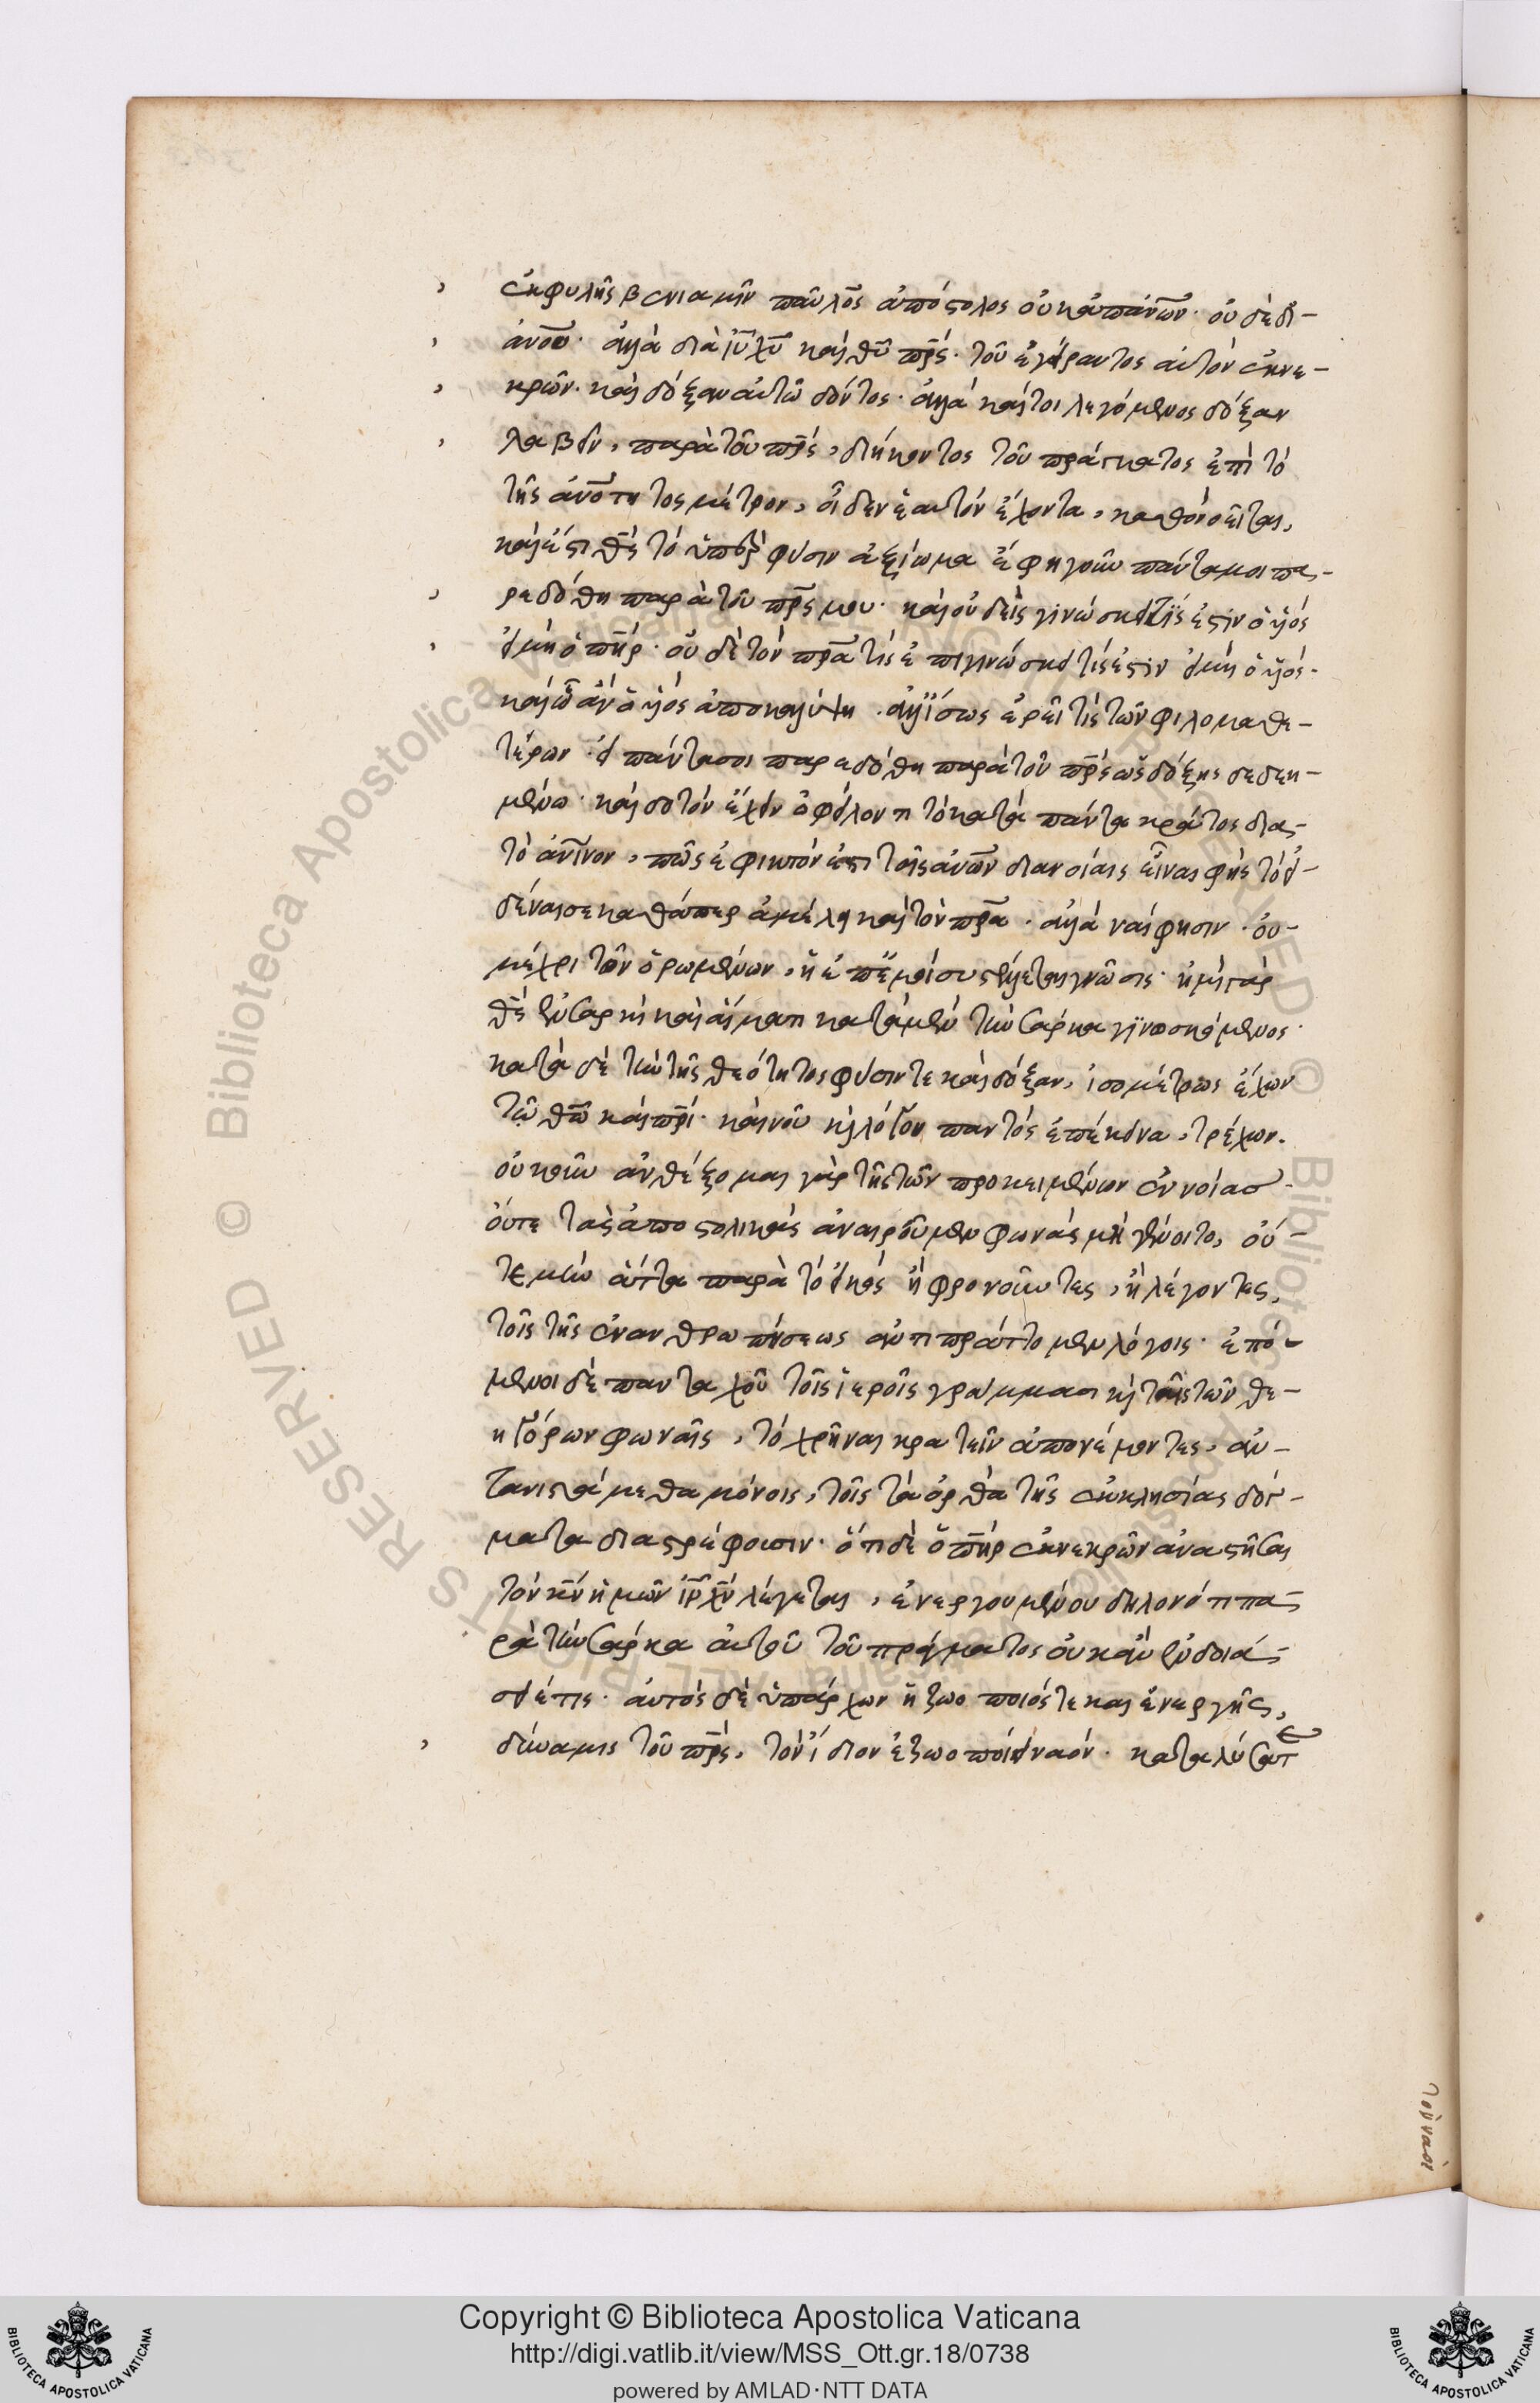 ἐκ φυλῆς βενιαμὴν παῦλος ἀπόστολος οὐκ ἀπ' ἀν̅ω̅ν· οὐδὲ δι-
ἀν̅ο̅υ· ἀλλὰ διὰ ι̅υ̅ χ̅υ̅ καὶ θ̅υ̅ π̅ρ̅ς· τοῦ ἐγείραντος αὐτὸν ἐκ νε-
κρῶν· καὶ δόξαν αὐτῶ δόντος· ἀλλὰ καίτοι λεγόμενος δόξαν
λαβεῖν, παρὰ τοῦ π̅ρ̅ς, διήκοντος τοῦ πράγματος ἐπὶ τὸ
τῆς ἀν̅ο̅τητος μέτρον, οἶδεν ἑαυτὸν ἔχοντα, καθὸ νοεῖται,
καὶ ἔστι θ̅ς̅ τὸ ὑπὲρ φύσιν ἀξίωμα ἔφη γοῦν πάντα μοι πα-
ρεδόθη παρὰ τοῦ π̅ρ̅ς μου· καὶ οὐδεὶς γινώσκει τίς ἐστιν ὁ υ̅ἱ̅ός
εἰ μὴ ὁ π̅η̅ρ· οὐδὲ τὸν π̅ρ̅α τίς ἐπιγινώσκει τίς ἐστιν εἰ μὴ ὁ υἱός·
καὶ ὧ ἂν ὁ υἱὸς ἀποκαλύψη· ἀλλ' ἴσως ἐρεῖ τίς τῶν φιλομαθε-
τέρων· εἰ πάντα σοι παρεδόθη παρὰ τοῦ π̅ρ̅ς ὡς δόξης δεδεη-
μένω· καὶ δοτὸν ἔχειν ὀφείλοντι τὸ κατὰ πάντα κράτος διὰ
τὸ ἀν̅ινον, πῶς ἐφικτὸν ἐπι ταῖς ἀν̅ω̅ν διανοίαις εἶναι φὴς τὸ εἰ-
δέναι σε καθάπερ ἀμέλει καὶ τὸν π̅ρ̅α· ἀλλὰ ναί φησιν· οὐ
μέχρι τῶν ὁρωμένων, ἡ ἐπ' ἐμοί συστέλλεται γνῶσις· εἰμὶ γὰρ
θ̅ς̅ ἐν σαρκὶ καὶ αἵματι κατὰ μὲν τὴν σάρκα γινωσκόμενος·
κατὰ δὲ τὴν τῆς θεότητος φύσιν τε καὶ δόξαν, ἰσομέτρως ἔχων
τῷ θ̅ω̅ καὶ π̅ρ̅ί· καὶ νοῦ καὶ λόγου παντὸς ἐπέκεινα, τρέχων.
οὐκοῦν ἀνθέξομαι γὰρ τῆς τῶν προκειμένων ἐννοίας
οὔτε τὰς ἀποστολικὰς ἀναιροῦμεν φωνὰς μὴ γένοιτο, οὔ-
τε μὴν ἄττα παρὰ τὸ εἰκὸς ἢ φρονοῦντες, ἢ λέγοντες,
τοῖς τῆς ἐνανθρωπήσεως ἀντιπράττομεν λόγοις· ἑπό-
μενοι δὲ πανταχοῦ τοῖς ἱεροῖς γράμμασι καὶ ταῖς τῶν θε-
ηγόρων φωναῖς, τὸ χρῆναι κρατεῖν ἀπονέμοντες, ἀν-
τανιστάμεθα μόνοις, τοῖς τὰ ὀρθὰ τῆς ἐκκλησίας δόγ-
ματα διαστρέφουσιν· ὅτι δὲ ὁ π̅η̅ρ ἐκ νεκρῶν ἀναστῆσαι
τὸν κ̅ν̅ ἡμῶν ι̅ν̅ χ̅ν̅ λέγεται, ἐνεργουμένου δηλονότι πα-
ρὰ τὴν σάρκα αὐτοῦ τοῦ πράγματος οὐκ ἂν ἐνδοιά-
σειέ τις· αὐτὸς δὲ ὑπάρχων ἡ ζωοποιός τε καὶ ἐνεργής,
δύναμις τοῦ π̅ρ̅ς, τὸν ἴδιον ἐζωοποίει ναόν· καταλύσατε
τὸν ναὸν
Copyright © Biblioteca Apostolica Vaticana
http://digi.vatlib.it/view/MSS_Ott.gr.18/0738
powered by AMLAD·NTT DATA
BIBLIOTECA APOSTOLICA VATICANA
BIBLIOTECA APOSTOLICA VATICANA